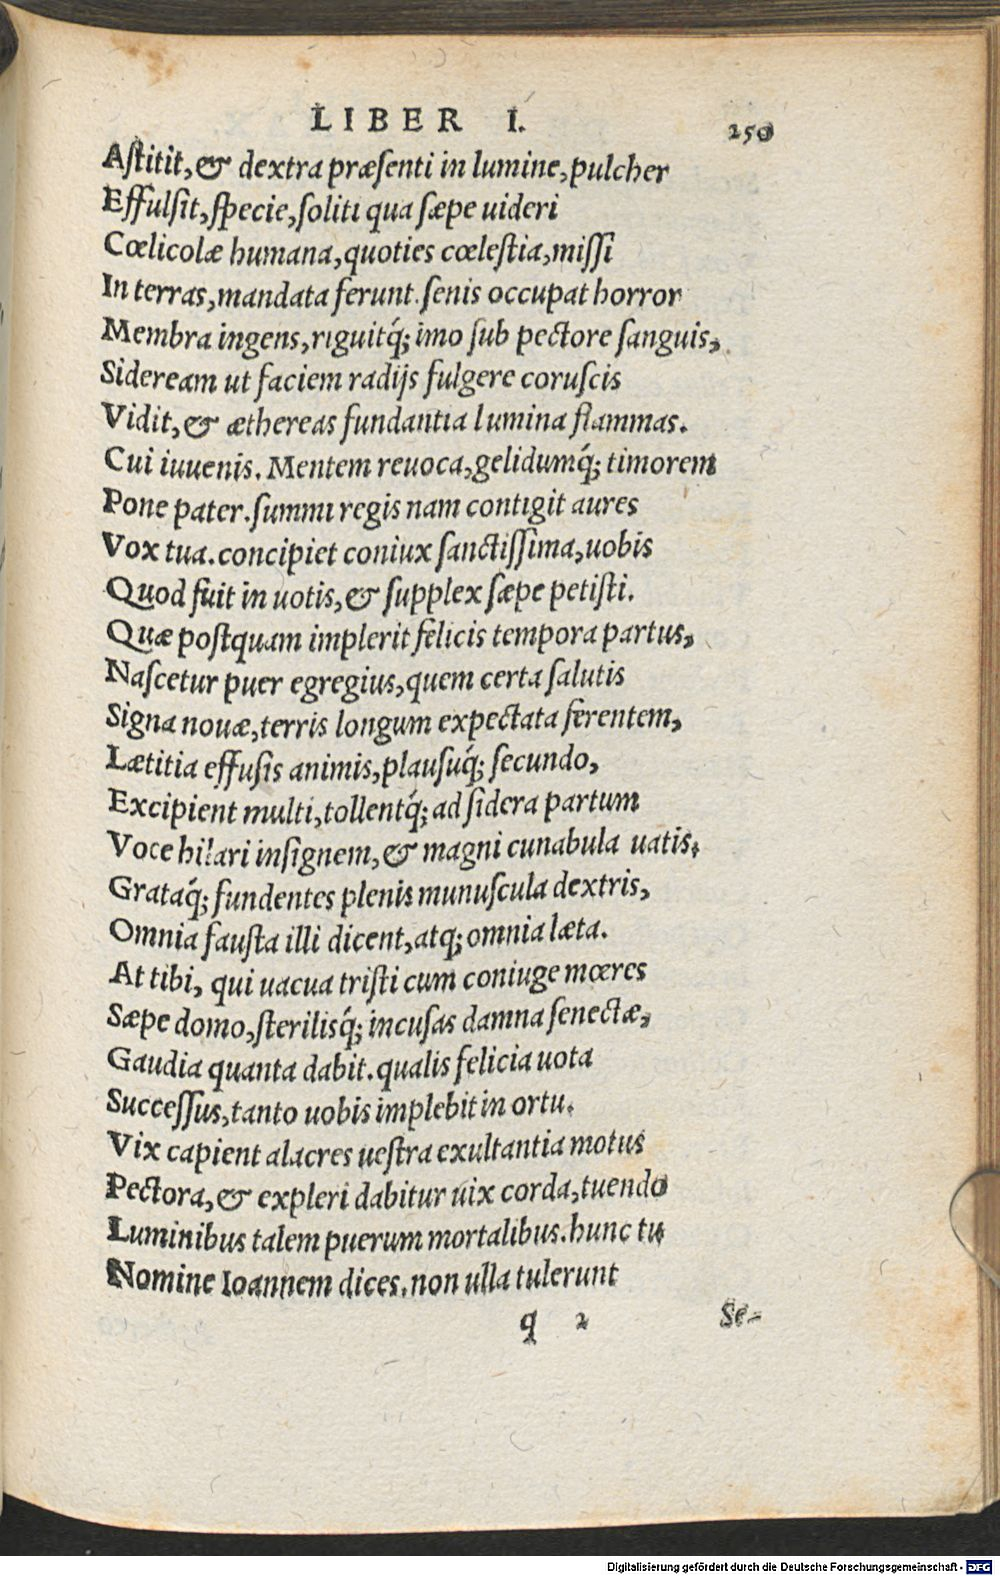 LIBER I. 250
Astitit, & dextra præsenti in lumine, pulcher
Effulsit, specie, soliti qua sæpe uideri
Cœlicolæ humana, quoties cœlestia, missi
In terras, mandata ferunt. senis occupat horror
Membra ingens, riguitq́; imo sub pectore sanguis,
Sideream ut faciem radijs fulgere coruscis
Vidit, & æthereas fundantia lumina flammas.
Cui iuuenis. Mentem reuoca, gelidumq́; timorem
Pone pater. summi regis nam contigit aures
Vox tua. concipiet coniux sanctissima, uobis
Quod fuit in uotis, & supplex sæpe petisti.
Quæ postquam implerit felicis tempora partus,
Nascetur puer egregius, quem certa salutis
Signa nouæ, terris longum expectata ferentem,
Lætitia effusis animis, plausuq́; secundo,
Excipient multi, tollentq́; ad sidera partum
Voce hilari insignem, & magni cunabula uatis;
Grataq́; fundentes plenis munuscula dextris,
Omnia fausta illi dicent, atq; omnia læta.
At tibi, qui uacua tristi cum coniuge mœres
Sæpe domo, sterilisq́; incusas damna senectæ,
Gaudia quanta dabit. qualis felicia uota
Successus, tanto uobis implebit in ortu.
Vix capient alacres uestra exultantia motus
Pectora, & expleri dabitur uix corda, tuendo
Luminibus talem puerum mortalibus. hunc tu
Nomine Ioannem dices. non ulla tulerunt
q 2 Se-
Digitalisierung gefördert durch die Deutsche Forschungsgemeinschaft - DFG